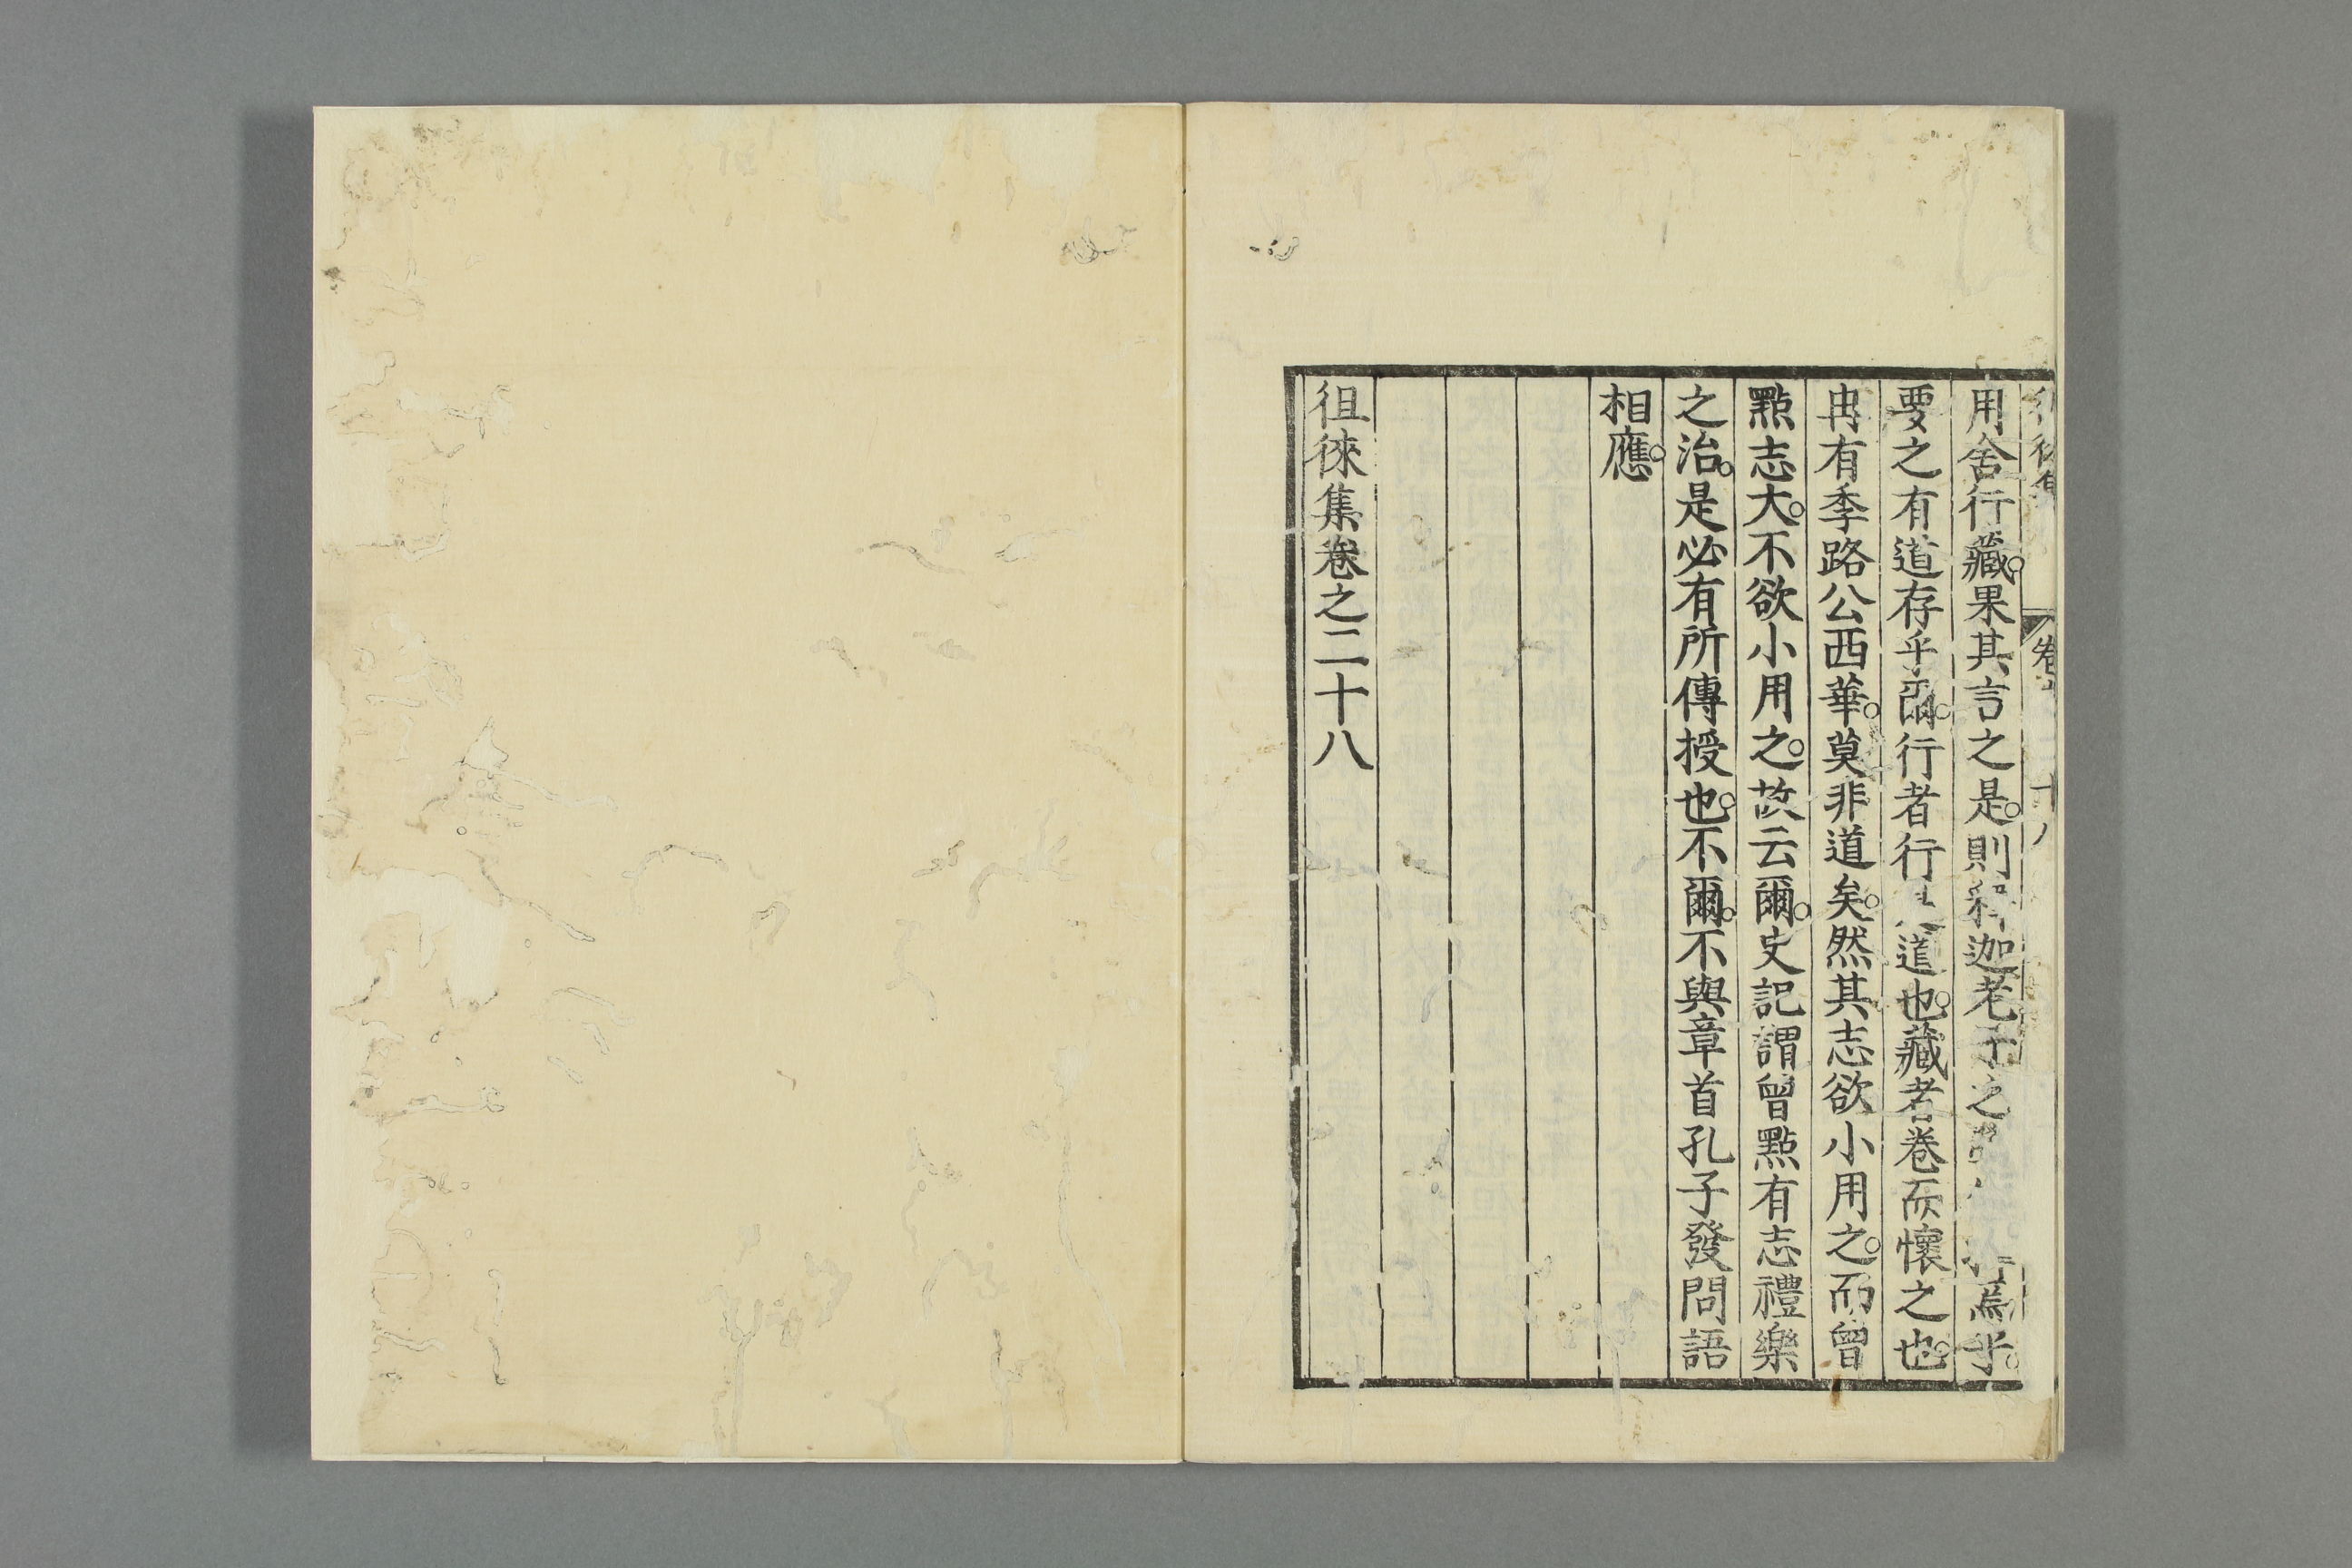 用舍行藏。果其言之是。則釋迦老子之行焉乎。
要之有道存乎爾。行者行道也。藏者卷而懷之也。
冉有季路公西華。莫非道矣。然其志欲小用之。而曾
點志大。不欲小用之。故云爾。史記謂曾點有志禮樂
之治。是必有所傳授也。不爾。不與章首孔子發問語
相應。
徂徠集卷之二十八